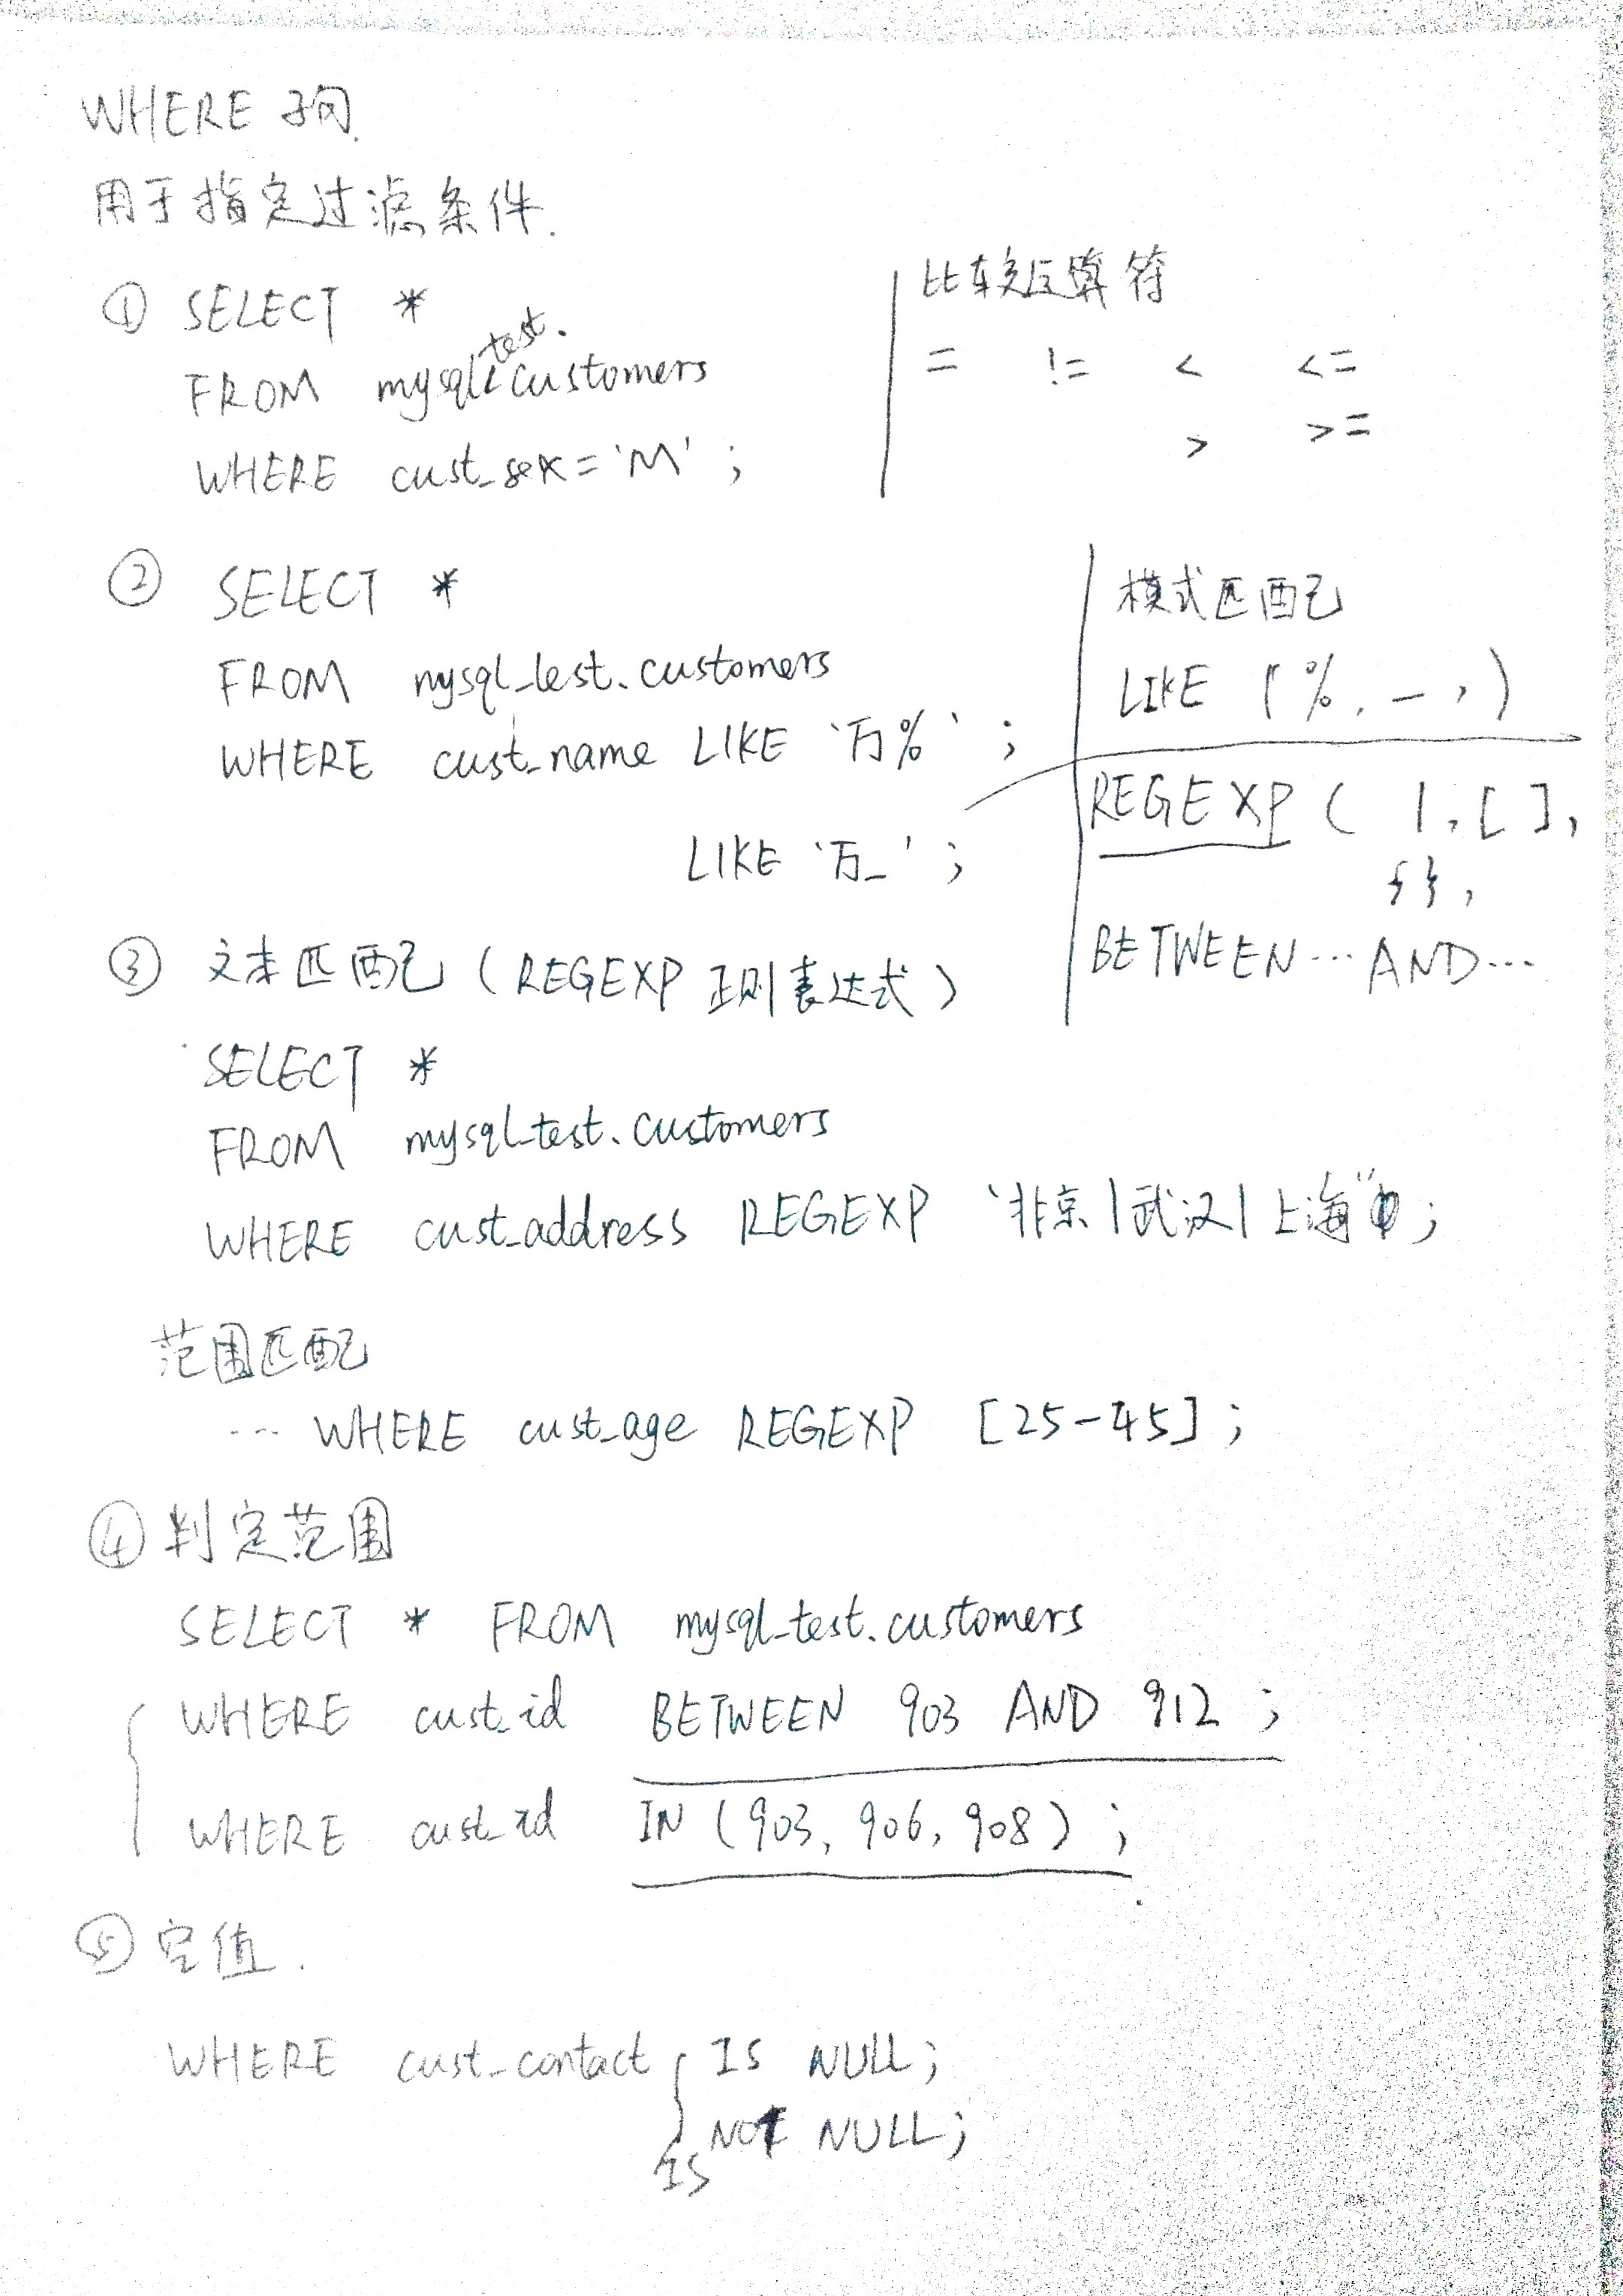 WHERE 子句.
用于指定过滤条件.
① SELECT *
FROM mysql_test.customers
WHERE cust_sex = 'M' ;
比较运算符
= != < <=
> >=
② SELECT *
FROM mysql_test.customers
WHERE cust_name LIKE '万%' ;
LIKE '万_' ;
模式匹配
LIKE (%, _ , )
REGEXP ( |, [ ],
{ },
BETWEEN … AND …
③ 文本匹配 (REGEXP 正则表达式)
SELECT *
FROM mysql_test.customers
WHERE cust_address REGEXP '北京|武汉|上海' ;
范围匹配
… WHERE cust_age REGEXP [25-45] ;
④ 判定范围
SELECT * FROM mysql_test.customers
WHERE cust_id BETWEEN 903 AND 912 ;
WHERE cust_id IN (903, 906, 908) ;
⑤ 空值.
WHERE cust_contact IS NULL;
IS NOT NULL;